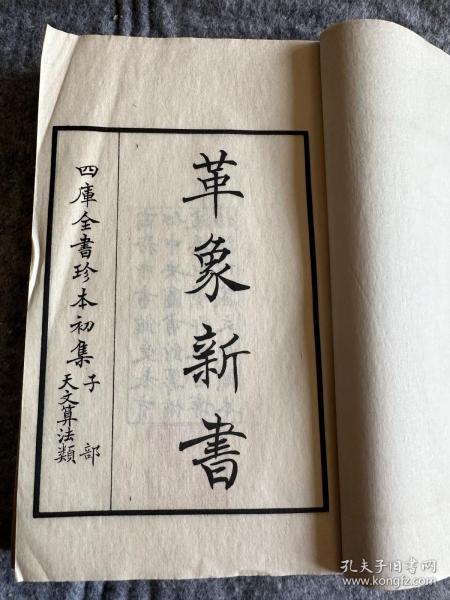 革象新書
四庫全書珍本初集
子部
天文算法類
孔夫子旧书网
www.kongfz.com